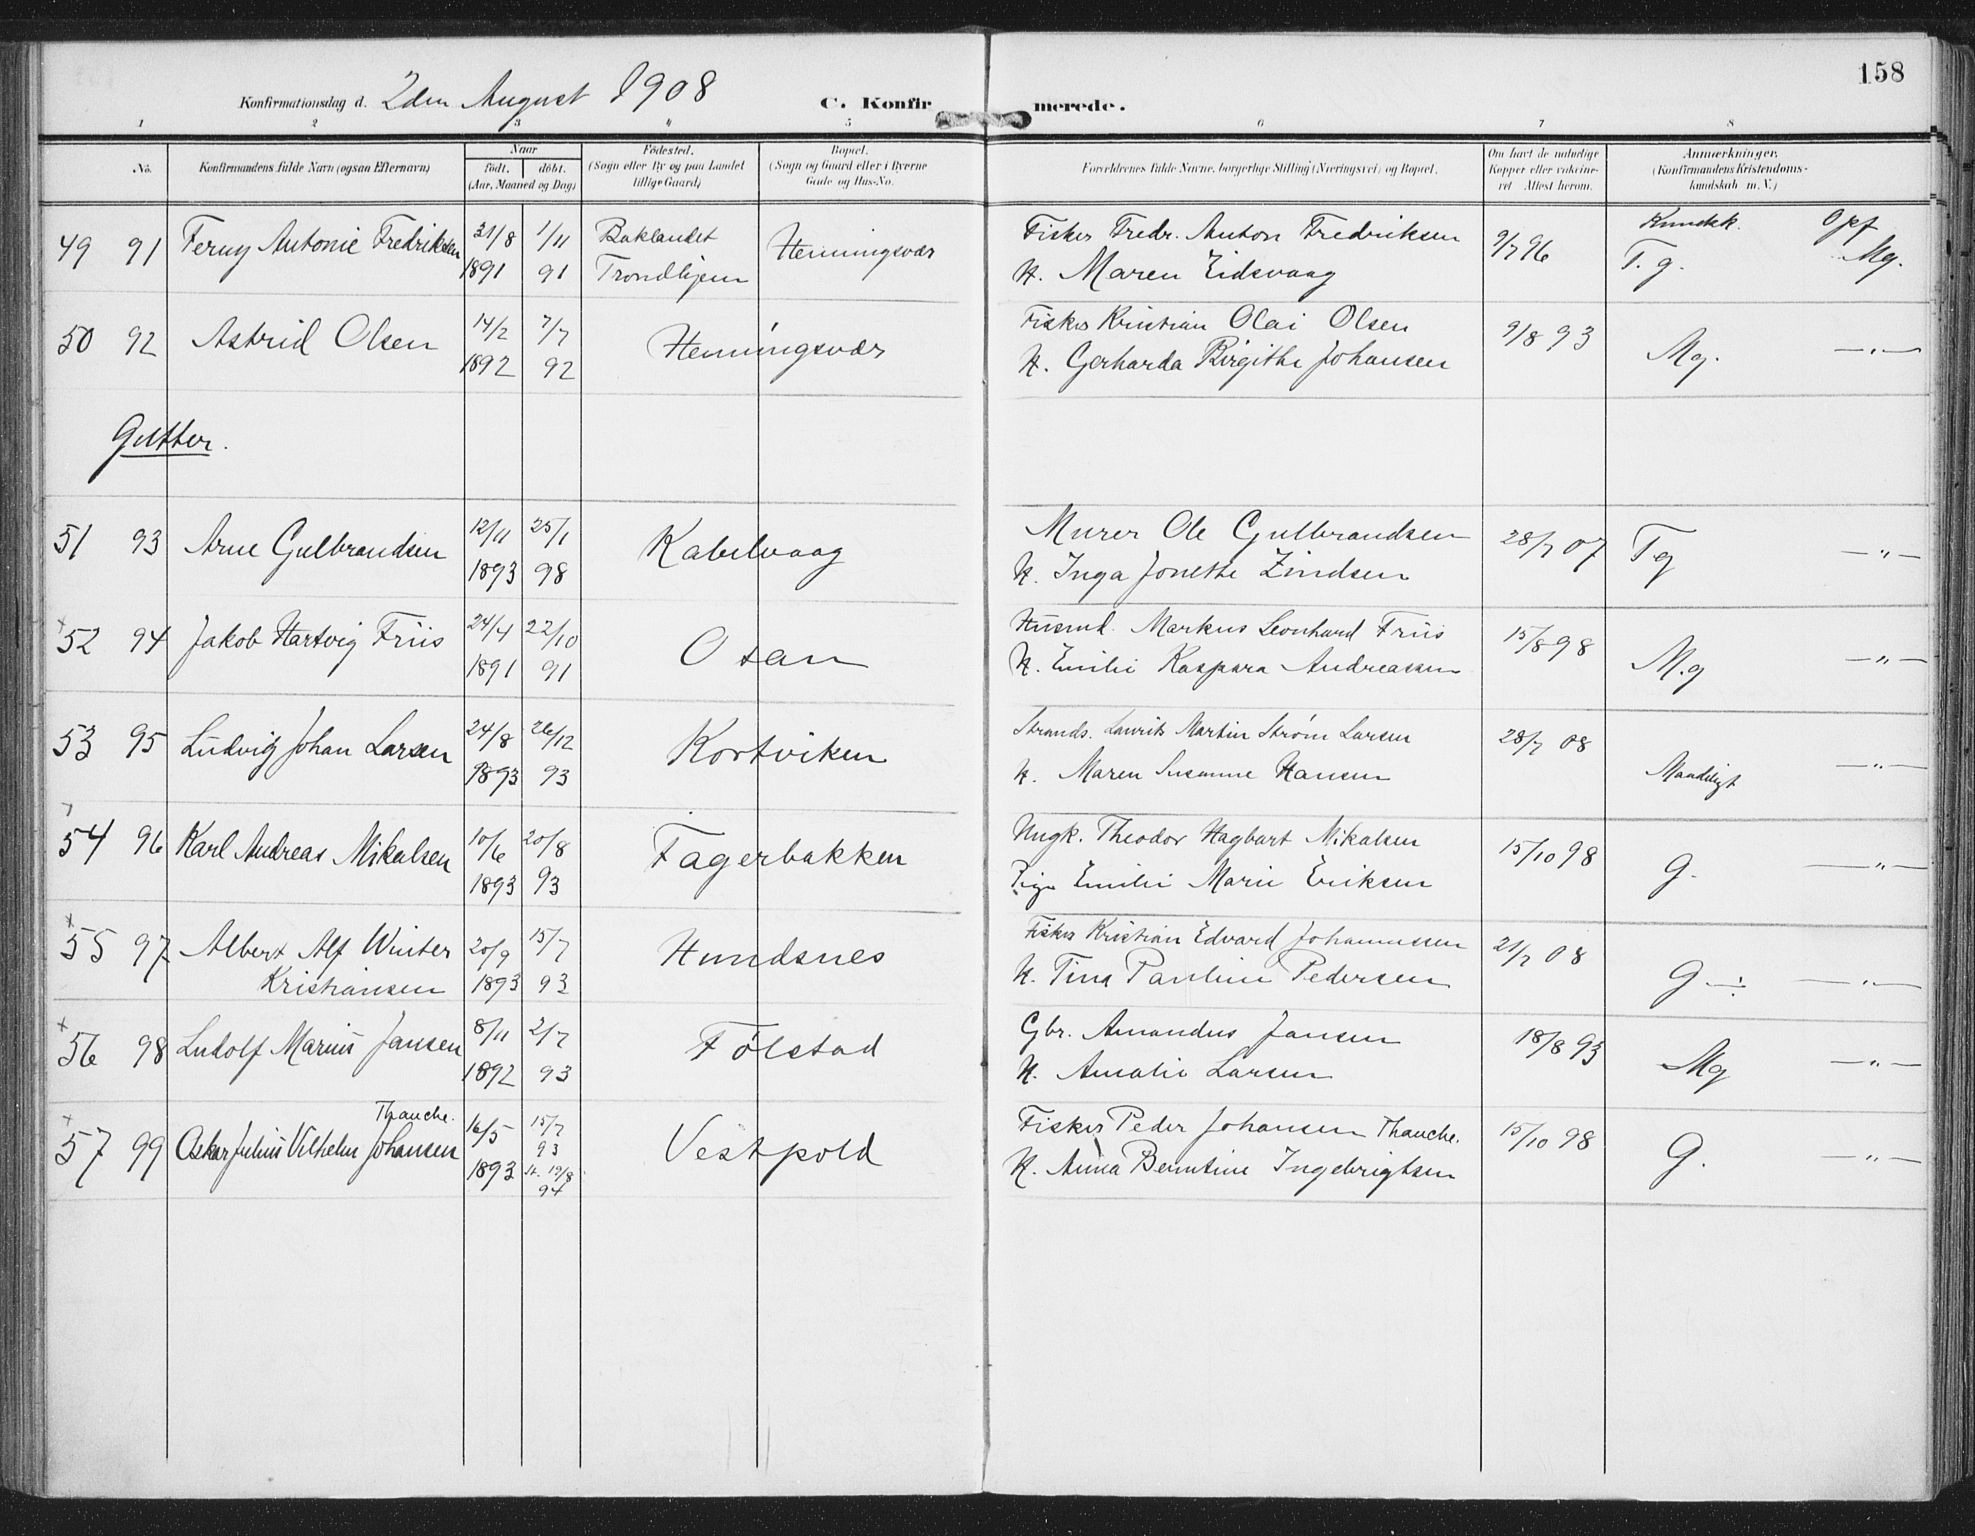 158
Konfirmationsdag d. 2den August 1908 C. Konfirmerede.
1 2 3 4 5 6 7 8
No. Konfirmandens fulde Navn (ogsaa Efternavn) Naar født. døbt. (Aar, Maaned og Dag) Fødested. (Sogn eller By og paa Landet tillige Gaard) Bopæl. (Sogn og Gaard eller i Byerne Gade og Hus-No. Forældrenes fulde Navne, borgerlige Stilling (Næringsvei) og Bopæl. Om havt de naturlige Kopper eller vaccineret Attest herom. Anmærkninger. (Konfirmandens Kristendomskundskab m. V.)
Kundsk. Opf
49 91 Ferny Antonie Fredriksen 31/8 1/11 Baklandet Henningsvær Fisker Fredr. Anton Fredriksen 9/7 96 T. g. Mg.
1891 91 Trondhjem H. Maren Eidsvaag
50 92 Astrid Olsen 14/2 7/7 Henningsvær Fisker Kristian Olai Olsen 9/8 93 Mg. —"—
1892 92 H. Gerharda Birgithe Johansen
Gutter.
51 93 Arne Gulbrandsen 12/11 25/1 Kabelvaag Murer Ole Gulbrandsen 28/7 07 Tg —"—
1893 98 H. Inga Jonette Zindsen
52 94 Jakob Hartvig Friis 24/4 22/10 Osan Husmd. Markus Leonhard Friis 15/8 98 M.g —"—
1891 91 H. Emilie Kaspara Andreassen
53 95 Ludvig Johan Larsen 24/8 26/12 Kortviken Strands. Laurits Martin Strøm Larsen 28/7 08 Maadeligt —"—
1893 93 H. Maren Susanne Hansen
54 96 Karl Andreas Mikalsen 10/6 20/8 Fagerbakken Ungk. Theodor Hagbart Mikalsen 15/10 98 G. —"—
1893 93 Pige Emilie Marie Eriksen
55 97 Albert Alf Winter 20/9 15/7 Hundsnes Fisker Kristian Edvard Johannessen 21/7 08 G —"—
Kristiansen 1893 93 H. Tina Pauline Pedersen
56 98 Ludolf Marius Jansen 8/11 2/7 Følstad Gbr. Amandus Jansen 18/8 93 Mg —"—
1892 93 H. Amalie Larsen
Thauche.
57 99 Oskar Julius Vilhelm Johansen 16/5 15/7 93 Vestpold Fisker Peder Johansen Thauche. 15/10 98 G. —"—
1893 st. 19/8 94 H. Anna Berntine Ingebrigtsen